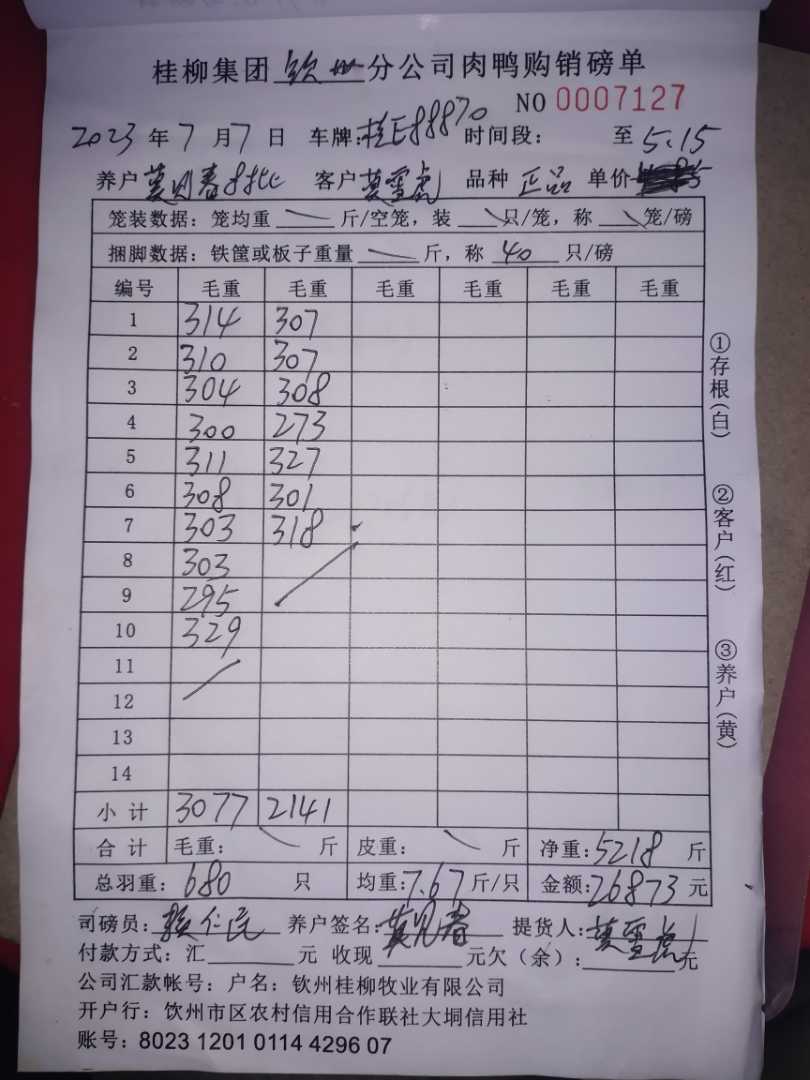 桂柳集团 钦州 分公司肉鸭购销磅单
NO 0007127
2023 年 7 月 7 日 车牌:桂E88870 时间段: 至 5.15
养户 莫见春 8批 客户 莫雪虎 品种 正品 单价
笼装数据: 笼均重 斤/空笼, 装 只/笼, 称 笼/磅
捆脚数据: 铁筐或板子重量 斤, 称 40 只/磅
编号 毛重 毛重 毛重 毛重 毛重 毛重
1 314 307
2 310 307
3 304 308
4 300 273
5 311 327
6 308 301
7 303 318
8 303
9 295
10 329
11
12
13
14
小计 3077 2141
合计 毛重: 斤 皮重: 斤 净重: 5218 斤
总羽重: 680 只 均重: 7.67 斤/只 金额: 26873 元
司磅员: 仁 养户签名: 莫见春 提货人: 莫雪虎
付款方式: 汇 元 收现 元欠（余）: 元
公司汇款帐号: 户名: 钦州桂柳牧业有限公司
开户行: 饮州市区农村信用合作联社大垌信用社
账号: 8023 1201 0114 4296 07
①存根(白)
②客户(红)
③养户(黄)